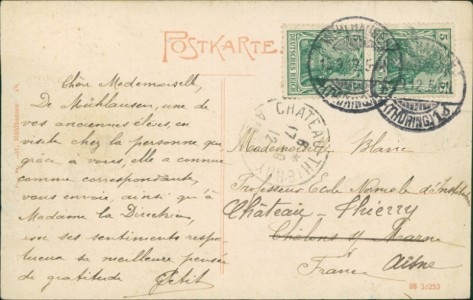 POSTKARTE
Chère Mademoiselle,
De Mühlhausen, une de
vos anciennes élèves, en
visite chez la personne que
grâce à vous, elle a connue
comme correspondante,
vous envoie, ainsi qu'à
Madame la Directrice
ses sentiments respec
tueux sa meilleure pensée
de gratitude. Petit
DEUTSCHES REICH
5
5
MÜHLHAUSEN
(THÜRING)
(THÜRING) 1
CHATEAU-THIERRY
17
12
Mademoiselle Blanc
Professeur Ecole Normale d'Instit
Château-Thierry
Châlons s/ Marne
France Aisne